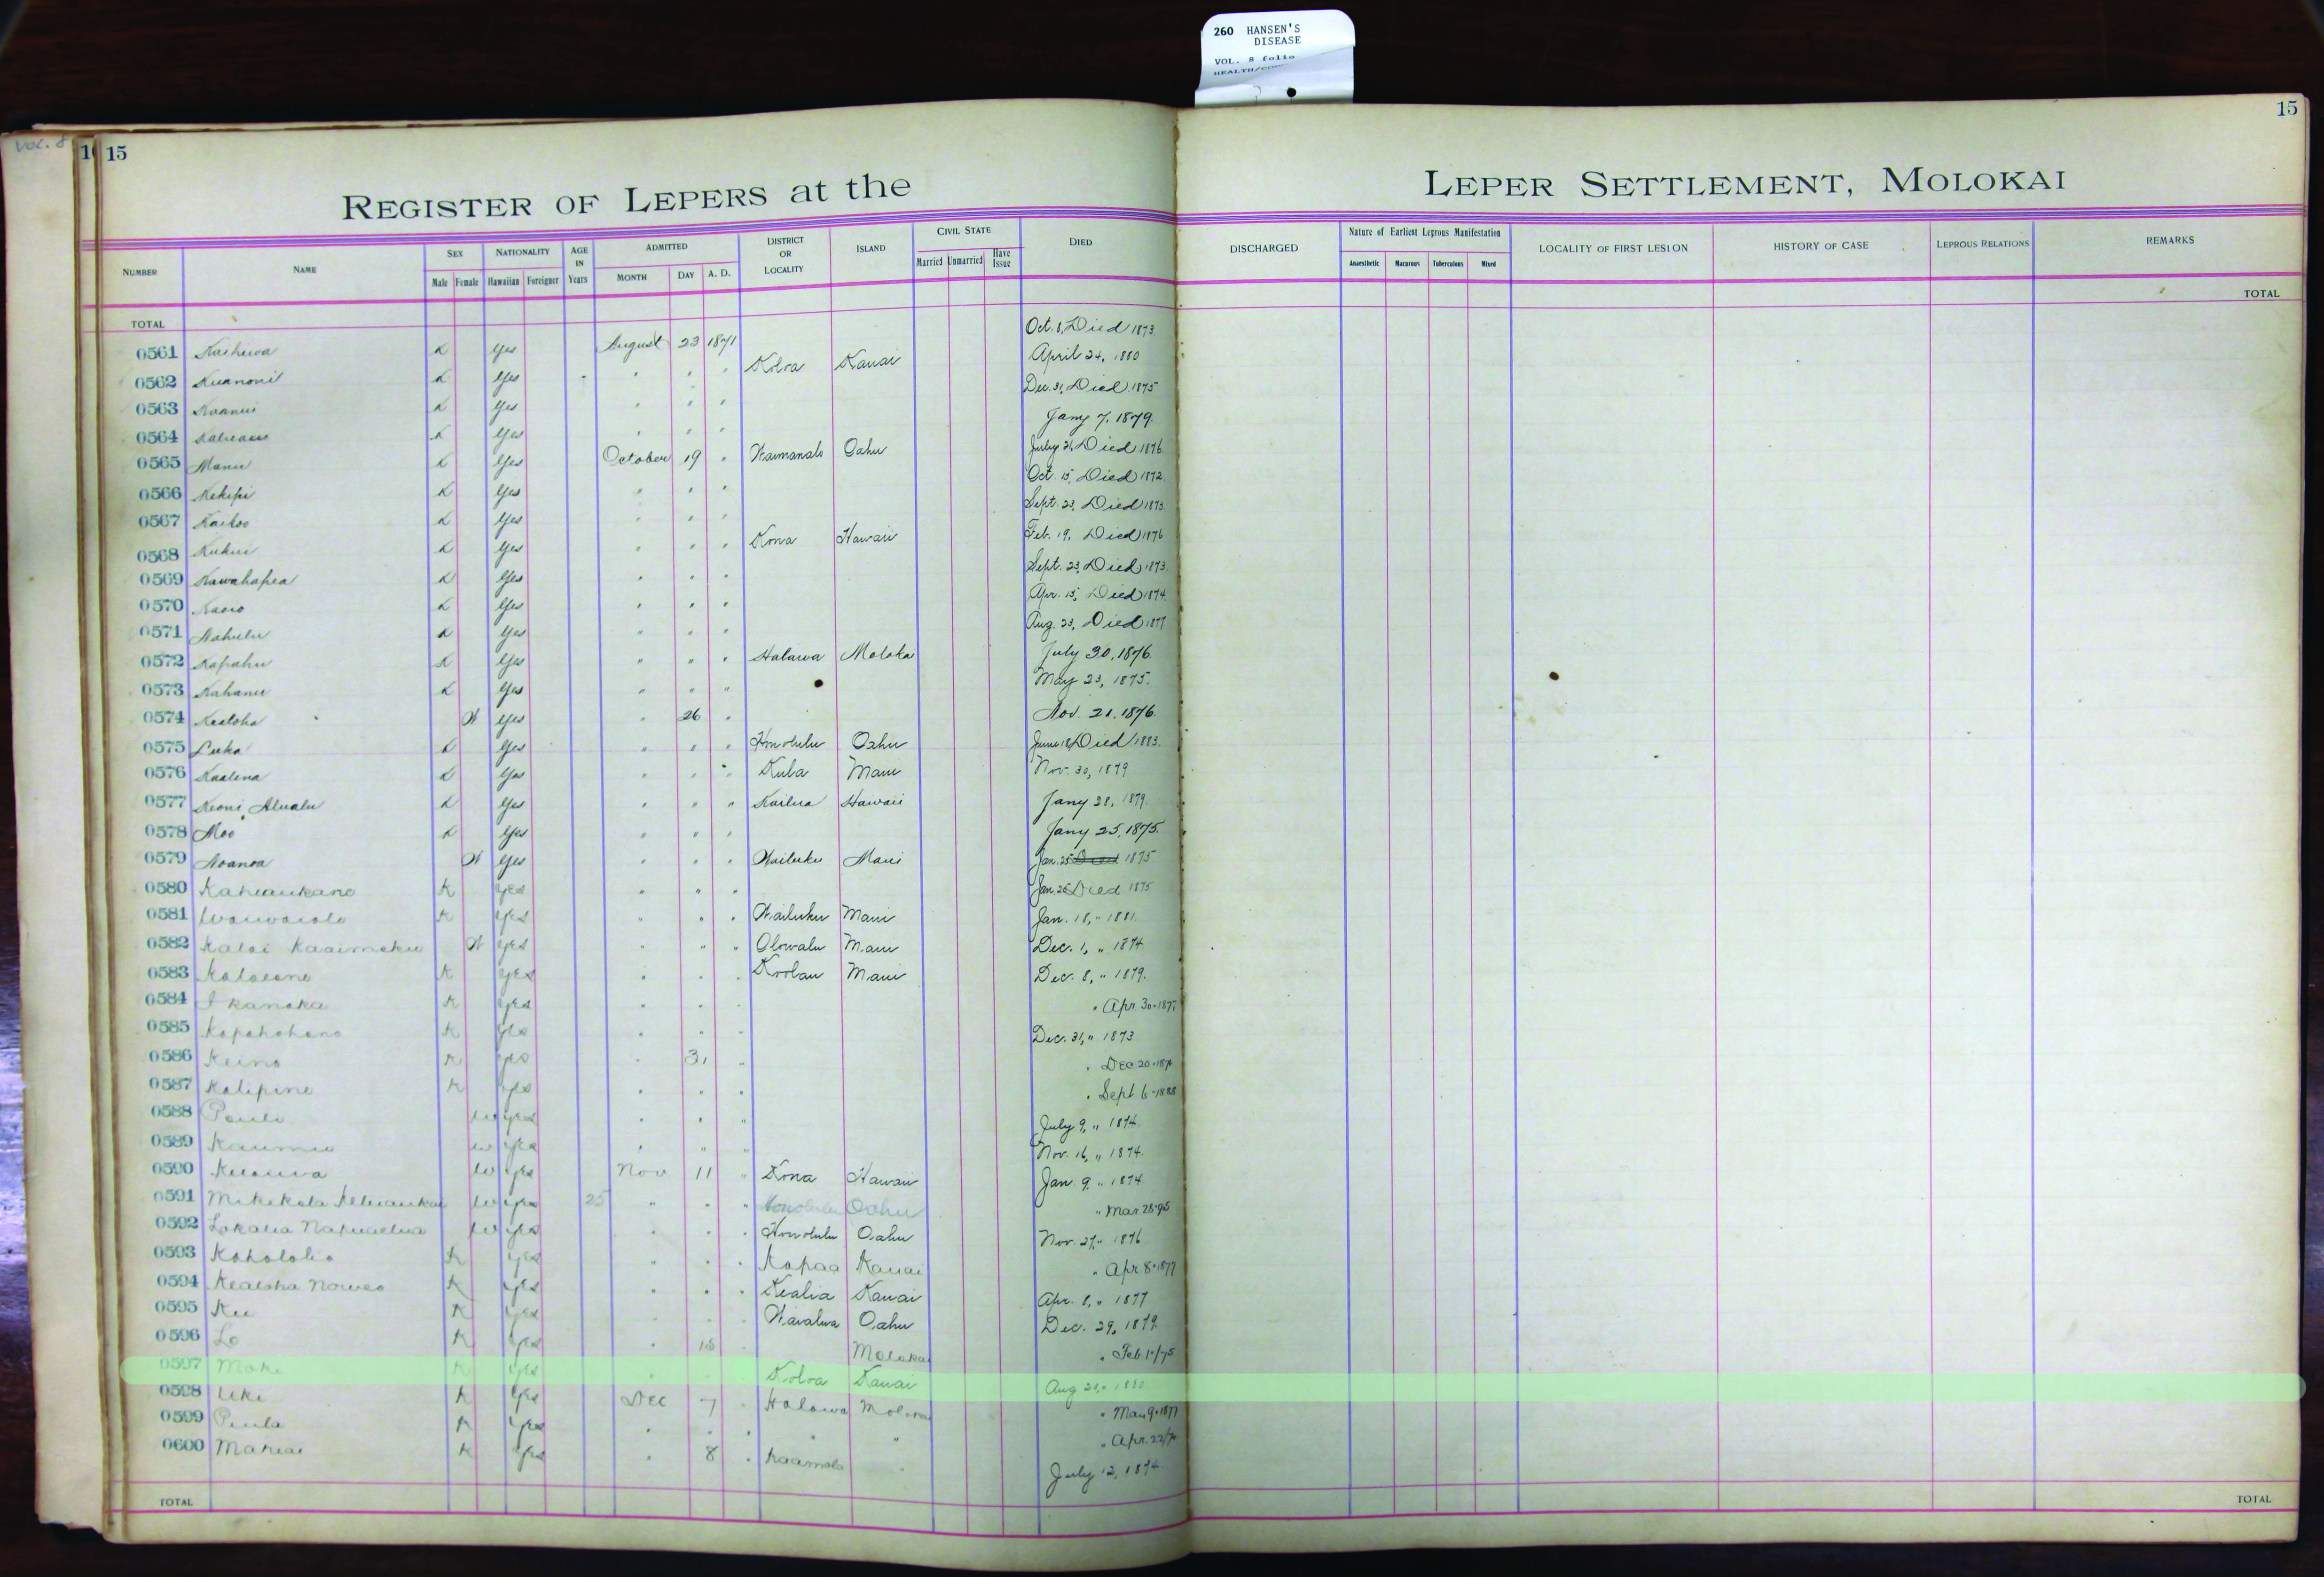 260 HANSEN'S
DISEASE
VOL. 8 folio
VOL. 8
15
15
REGISTER OF LEPERS at the
LEPER SETTLEMENT, MOLOKAI
NUMBER NAME SEX Male Female NATIONALITY Hawaiian Foreigner AGE IN Years ADMITTED MONTH DAY A. D. DISTRICT OR LOCALITY ISLAND CIVIL STATE Married Unmarried Have Issue DIED DISCHARGED Nature of Earliest Leprous Manifestation Anaesthetic Macurous Tuberculous Mixed LOCALITY OF FIRST LESION HISTORY OF CASE LEPROUS RELATIONS REMARKS
TOTAL TOTAL
0561 K Yes August 23 1871 Oct. 8, Died 1873
0562 K Yes " " " Koloa Kauai April 24, 1880
0563 K Yes " " " Dec. 31, Died 1875
0564 K Yes " " " Jany 7, 1879.
0565 Manu K Yes October 19 " Waimanalo Oahu July 21, Died 1876
0566 Kekipi K Yes " " " Oct. 15, Died 1872
0567 Kaikoo K Yes " " " Sept. 23, Died 1873
0568 Kukui K Yes " " " Kona Hawaii Feb. 19, Died 1876
0569 Kawahapea K Yes " " " Sept. 23, Died 1873
0570 K Yes " " " Apr. 15, Died 1874
0571 Nahulu K Yes " " " Aug. 23, Died 1877
0572 Kapahu K Yes " " " Halawa Moloka July 30, 1876
0573 Kahanu K Yes " " " May 23, 1875.
0574 Kealoha W Yes " 26 " Nov. 21, 1876.
0575 Luka K Yes " " " Honolulu Oahu June 18, Died 1883.
0576 Kaalena K Yes " " " Kula Maui Nov. 30, 1879
0577 Keoni Alualu K Yes " " " Kailua Hawaii Jany 28, 1879.
0578 Moo K Yes " " " Jany 25, 1875.
0579 Noanoa W Yes " " " Wailuku Maui Jan. 25 Died 1875
0580 Kaheaukane K Yes " " " Jan. 25 Died 1875
0581 Waiwaiole K Yes " " " Wailuku Maui Jan. 18, " 1881
0582 Kalai Kaaimoku W Yes " " " Olowalu Maui Dec. 1, " 1874
0583 K Yes " " " Koolau Maui Dec. 8, " 1879.
0584 Ikanaka K Yes " " " " Apr 30 - 1877
0585 K Yes " " " Dec. 31, " 1873
0586 Keino K Yes " 31 " " Dec 20
0587 Kalipine K Yes " " " " Sept 6 - 1888
0588 W Yes " " " July 9, " 1874.
0589 Kaumu W Yes " " " Nov. 16, " 1874.
0590 W Yes Nov 11 " Kona Hawaii Jan 9, " 1874
0591 Mikekola W Yes 25 " " " Honolulu Oahu " Mar. 28-95
0592 Lokalia W Yes " " " Honolulu Oahu Nov. 27, " 1876
0593 Koholoho K Yes " " " Kapaa Kauai " Apr 8 - 1877
0594 Kealoha K Yes " " " Kealia Kauai Apr. 8, " 1877
0595 Ku K Yes " " " Waialua Oahu Dec. 29, 1879
0596 Lo K Yes " 18 " Molokai " Feb. 1/75
0597 Moke K Yes " " " Koloa Kauai Aug 21, " 1880
0598 Uki K Yes Dec 7 " Halawa Molokai " Mar 9 - 1877
0599 Paula K Yes " " " " " " Apr. 22/
0600 Mahiai K Yes " 8 " Kaamola " July 12, 1874
TOTAL TOTAL